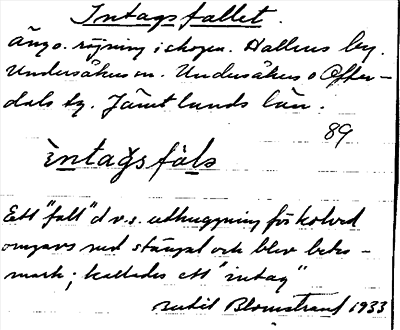 Intagsfallet.
Äng o. röjning i skogen. Hallens by.
Undersåkers sn. Undersåkers o Offer-
dals tg. Jämtlands län.
89
ìntăgsfäls
Ett "fall" d v.s. uthuggning för kolved
omgavs med stängsel och blev betes-
mark; kallades ett "intag"
Bertil Blomstrand 1933